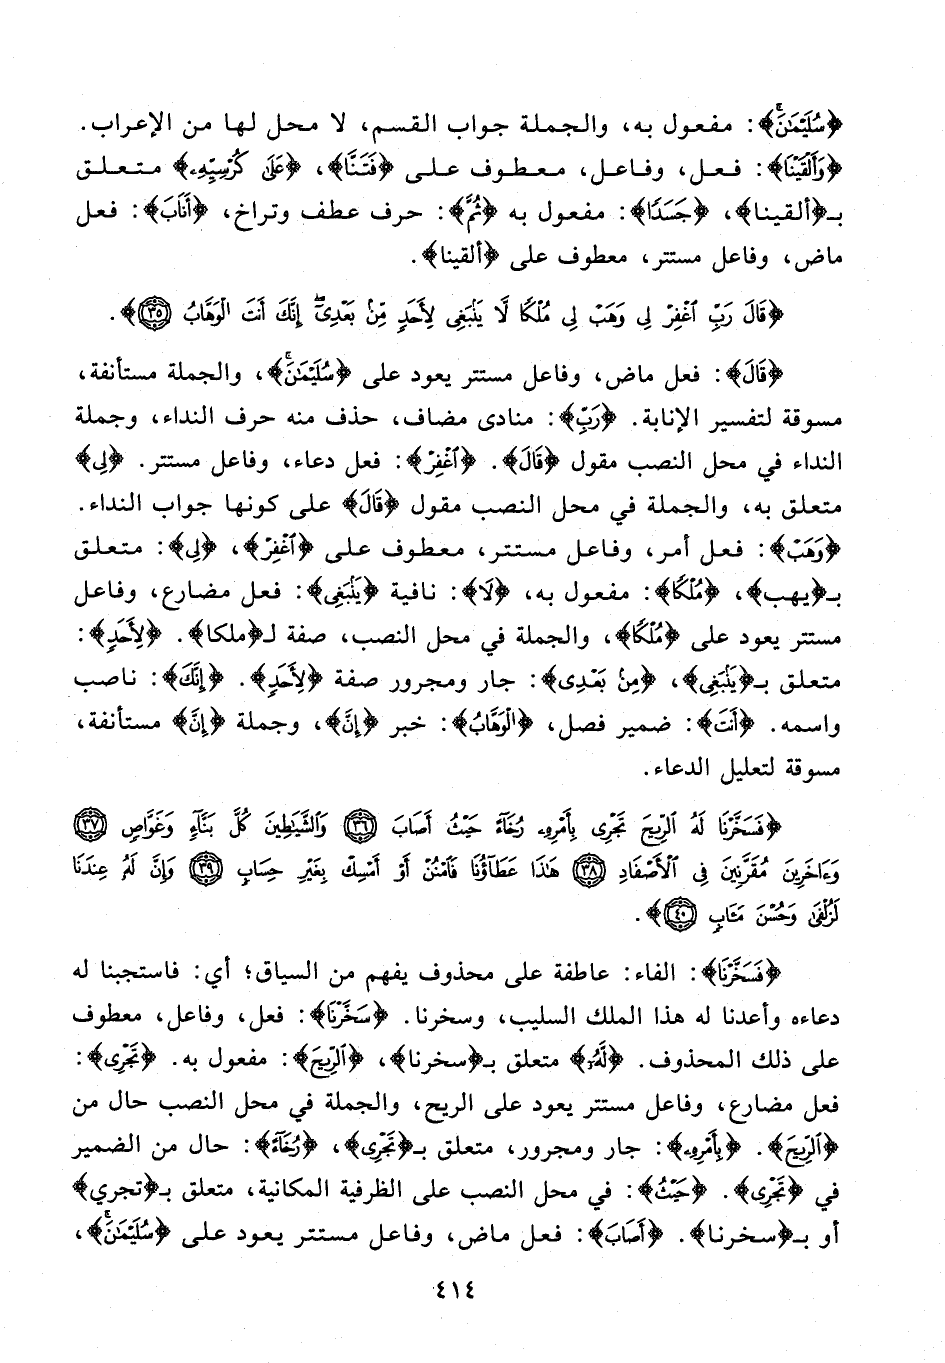 ﴿سُلَيْمَٰنَ﴾: مفعول به، والجملة جواب القسم، لا محل لها من الإعراب.
﴿وَأَلْقَيْنَا﴾: فعل، وفاعل، معطوف على ﴿فَتَنَّا﴾، ﴿عَلَىٰ كُرْسِيِّهِۦ﴾ متعلق
بـ﴿ألقينا﴾، ﴿جَسَدًا﴾: مفعول به ﴿ثُمَّ﴾: حرف عطف وتراخ، ﴿أَنَابَ﴾: فعل
ماض، وفاعل مستتر، معطوف على ﴿ألقينا﴾.
﴿قَالَ رَبِّ ٱغْفِرْ لِى وَهَبْ لِى مُلْكًا لَّا يَنۢبَغِى لِأَحَدٍ مِّنۢ بَعْدِىٓ ۖ إِنَّكَ أَنتَ ٱلْوَهَّابُ ٣٥﴾.
﴿قَالَ﴾: فعل ماض، وفاعل مستتر يعود على ﴿سُلَيْمَٰنَ﴾، والجملة مستأنفة،
مسوقة لتفسير الإنابة. ﴿رَبِّ﴾: منادى مضاف، حذف منه حرف النداء، وجملة
النداء في محل النصب مقول ﴿قَالَ﴾. ﴿ٱغْفِرْ﴾: فعل دعاء، وفاعل مستتر. ﴿لِى﴾
متعلق به، والجملة في محل النصب مقول ﴿قَالَ﴾ على كونها جواب النداء.
﴿وَهَبْ﴾: فعل أمر، وفاعل مستتر، معطوف على ﴿ٱغْفِرْ﴾، ﴿لِى﴾: متعلق
بـ﴿يهب﴾، ﴿مُلْكًا﴾: مفعول به، ﴿لَا﴾: نافية ﴿يَنۢبَغِى﴾: فعل مضارع، وفاعل
مستتر يعود على ﴿مُلْكًا﴾، والجملة في محل النصب، صفة لـ﴿ملكا﴾. ﴿لِأَحَدٍ﴾:
متعلق بـ﴿يَنۢبَغِى﴾، ﴿مِنۢ بَعْدِى﴾: جار ومجرور صفة ﴿لِأَحَدٍ﴾. ﴿إِنَّكَ﴾: ناصب
واسمه. ﴿أَنتَ﴾: ضمير فصل، ﴿ٱلْوَهَّابُ﴾: خبر ﴿إِنَّ﴾، وجملة ﴿إِنَّ﴾ مستأنفة،
مسوقة لتعليل الدعاء.
﴿فَسَخَّرْنَا لَهُ ٱلرِّيحَ تَجْرِى بِأَمْرِهِۦ رُخَآءً حَيْثُ أَصَابَ ٣٦ وَٱلشَّيَٰطِينَ كُلَّ بَنَّآءٍ وَغَوَّاصٍ ٣٧
وَءَاخَرِينَ مُقَرَّنِينَ فِى ٱلْأَصْفَادِ ٣٨ هَٰذَا عَطَآؤُنَا فَٱمْنُنْ أَوْ أَمْسِكْ بِغَيْرِ حِسَابٍ ٣٩ وَإِنَّ لَهُۥ عِندَنَا
لَزُلْفَىٰ وَحُسْنَ مَـَٔابٍ ٤٠﴾.
﴿فَسَخَّرْنَا﴾: الفاء: عاطفة على محذوف يفهم من السياق؛ أي: فاستجبنا له
دعاءه وأعدنا له هذا الملك السليب، وسخرنا. ﴿سَخَّرْنَا﴾: فعل، وفاعل، معطوف
على ذلك المحذوف. ﴿لَهُۥ﴾ متعلق بـ﴿سخرنا﴾، ﴿ٱلرِّيحَ﴾: مفعول به. ﴿تَجْرِى﴾:
فعل مضارع، وفاعل مستتر يعود على الريح، والجملة في محل النصب حال من
﴿ٱلرِّيحَ﴾. ﴿بِأَمْرِهِۦ﴾: جار ومجرور، متعلق بـ﴿تَجْرِى﴾، ﴿رُخَآءً﴾: حال من الضمير
في ﴿تَجْرِى﴾. ﴿حَيْثُ﴾: في محل النصب على الظرفية المكانية، متعلق بـ﴿تجري﴾
أو بـ﴿سخرنا﴾. ﴿أَصَابَ﴾: فعل ماض، وفاعل مستتر يعود على ﴿سُلَيْمَٰنَ﴾،
٤١٤